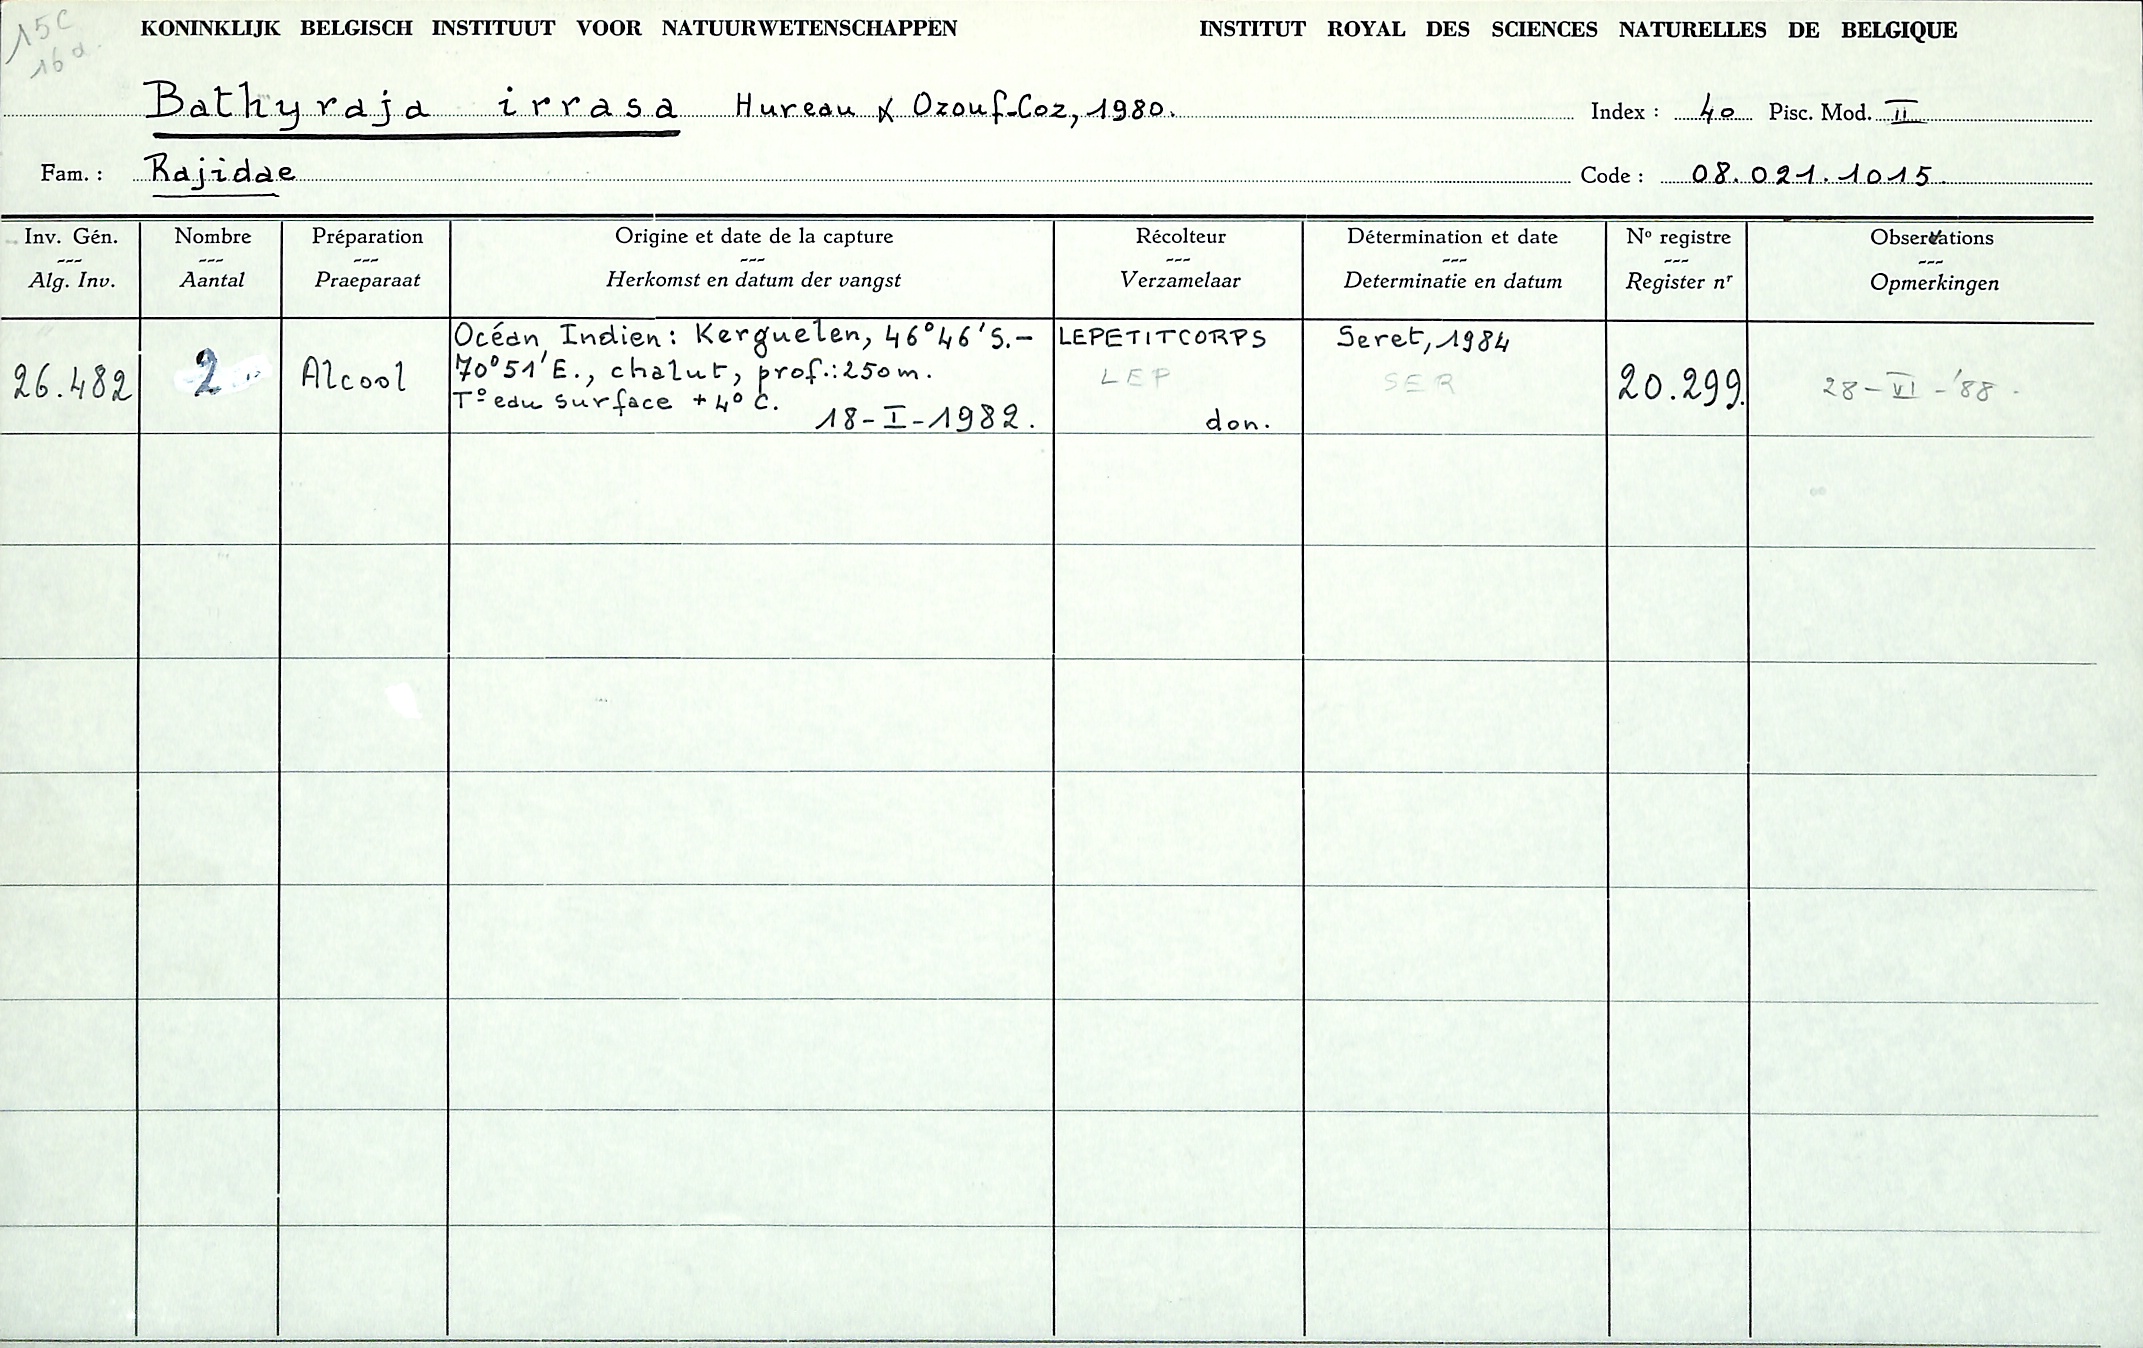 15C
16a.
KONINKLIJK BELGISCH INSTITUUT VOOR NATUURWETENSCHAPPEN
INSTITUT ROYAL DES SCIENCES NATURELLES DE BELGIQUE
Bathyraja irrasa Hureau & Ozouf-Coz, 1980.
Index : 40 Pisc. Mod. II
Fam. : Rajidae
Code : 08.021.1015.
Inv. Gén.
---
Alg. Inv.
Nombre
---
Aantal
Préparation
---
Praeparaat
Origine et date de la capture
---
Herkomst en datum der vangst
Récolteur
---
Verzamelaar
Détermination et date
---
Determinatie en datum
Nº registre
---
Register nʳ
Observations
---
Opmerkingen
26.482
2
Alcool
Océan Indien : Kerguelen, 46°46'S.-
70°51'E., chalut, prof.: 250m.
Tº eau surface + 4° C.
18-I-1982.
LEPETITCORPS
LEP
don.
Seret, 1984
SER
20.299.
28-VI-'88.